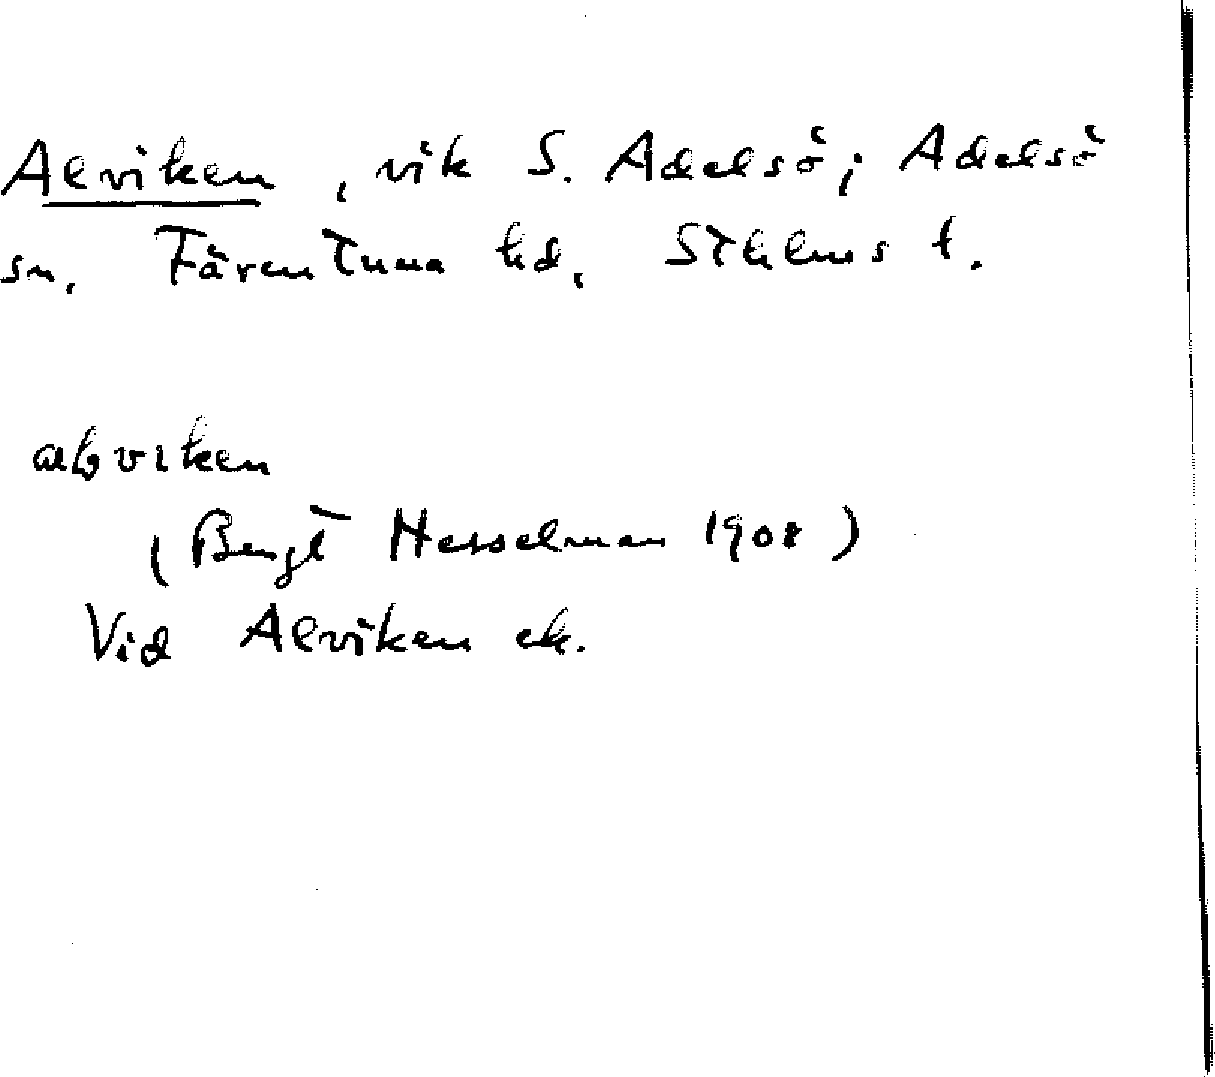 Alviken, vik S. Adelsö; Adelsö
sn. Färentuna hd. Sthlms l.
alviken
(Bengt Hesselman 1908)
Vid Alviken ek.